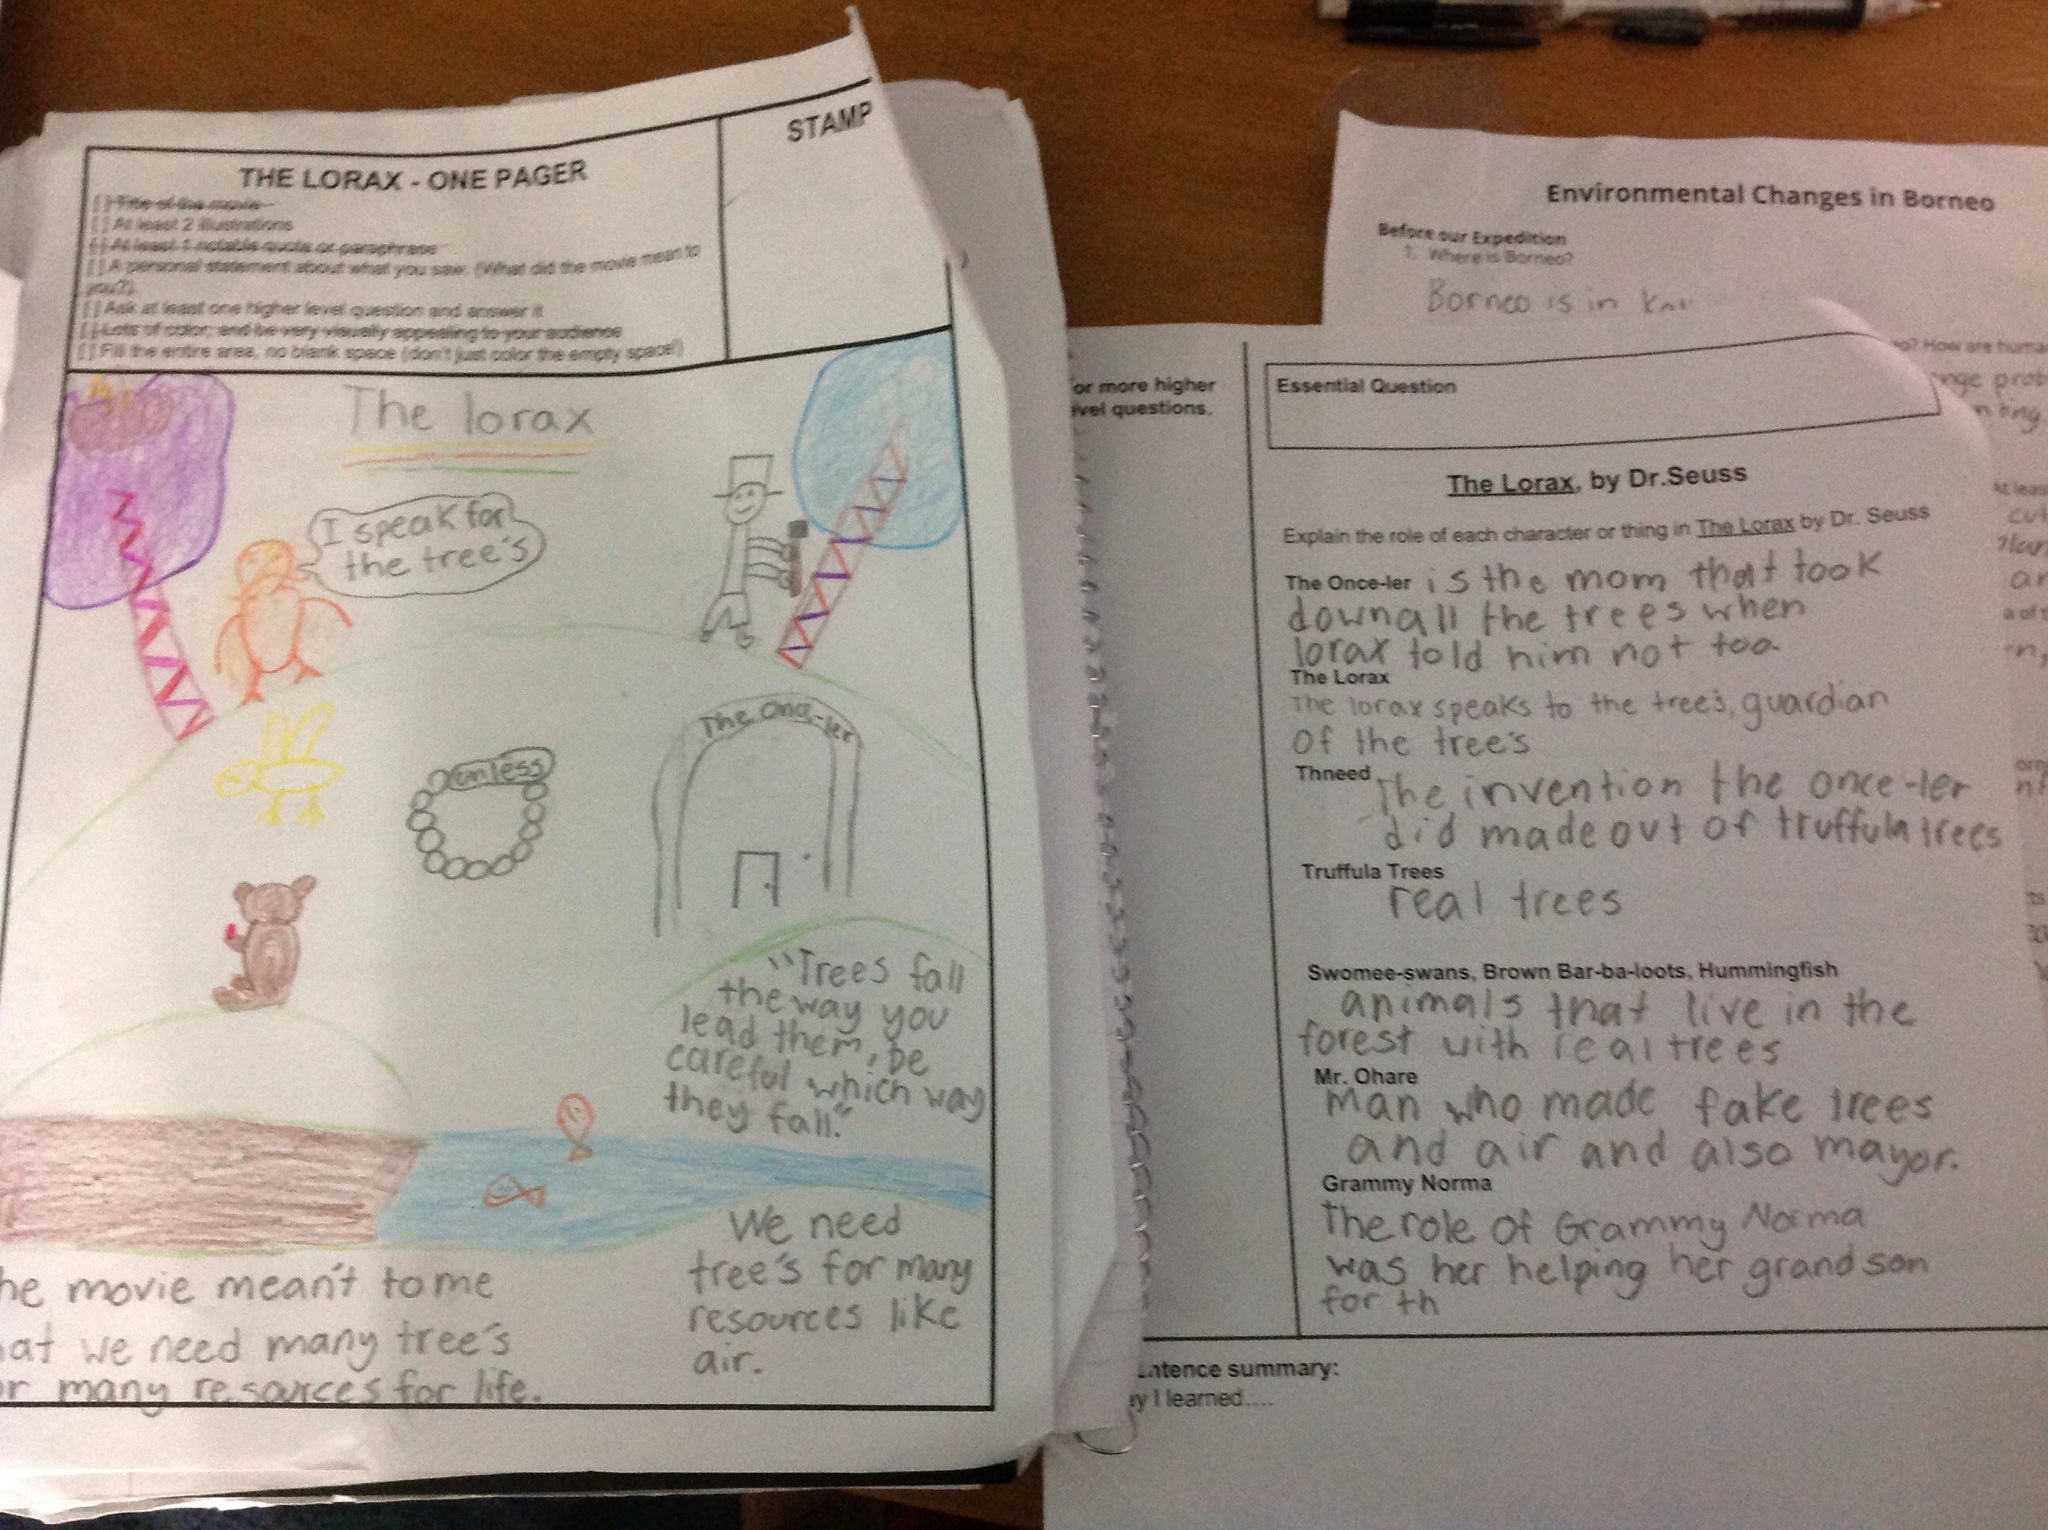 THE LORAX - ONE PAGER
STAMP
[ ] Title of the movie
[ ] At least 2 illustrations
[ ] At least 1 notable quote or paraphrase
[ ] A personal statement about what you saw. (What did the movie mean to
you?)
[ ] Ask at least one higher level question and answer it
[ ] Lots of color, and be very visually appealing to your audience
[ ] Fill the entire area, no blank space (don't just color the empty space!)
The lorax
I speak for
the tree's
The Once-ler
unless
"Trees fall
the way you
lead them, be
careful which way
they fall."
We need
tree's for many
resources like
air.
he movie mean't to me
at we need many tree's
or many resources for life.
Environmental Changes in Borneo
Before our Expedition
1. Where is Borneo?
Borneo is in
o? How are huma
nge prob
or more higher
vel questions.
Essential Question
The Lorax, by Dr.Seuss
Explain the role of each character or thing in The Lorax by Dr. Seuss
The Once-ler is the mom that took
down all the trees when
lorax told him not too.
The Lorax
The lorax speaks to the tree's, guardian
of the tree's
Thneed The invention the once-ler
did made out of truffula trees
Truffula Trees
real trees
Swomee-swans, Brown Bar-ba-loots, Hummingfish
animals that live in the
forest with real trees
Mr. Ohare
man who made fake trees
and air and also mayor.
Grammy Norma
The role of Grammy Norma
was her helping her grandson
for th
ntence summary:
y I learned....
At leas
cut